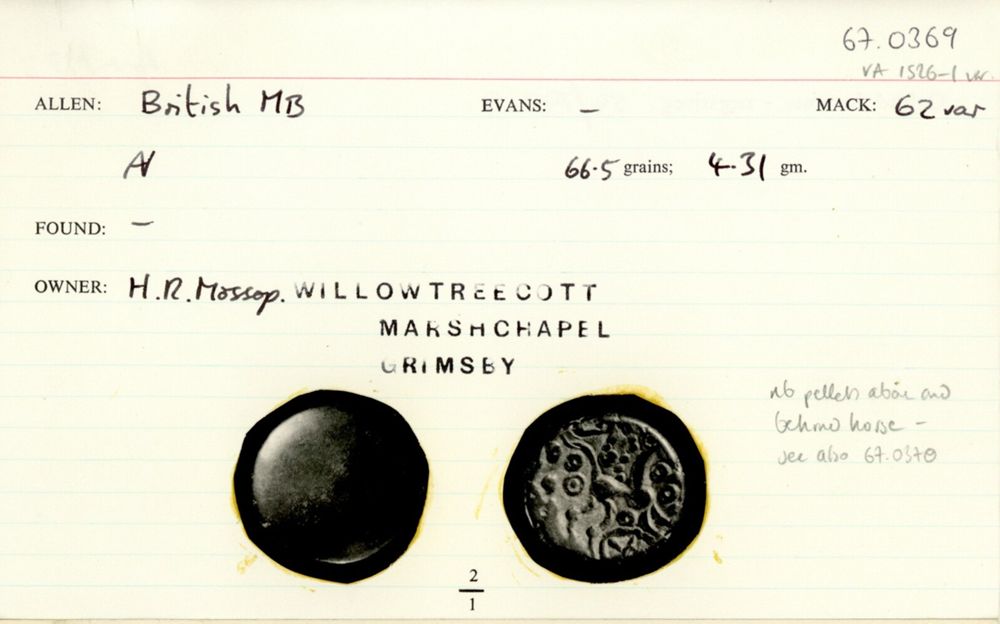 67.0369
VA 1526-1 var.
ALLEN: British MB EVANS: — MACK: 62 var
AV 66.5 grains; 4.31 gm.
FOUND: —
OWNER: H.R. Mossop. WILLOWTREECOTT
MARSHCHAPEL
GRIMSBY
nb pellets above and
behind horse -
see also 67.0370
2
1